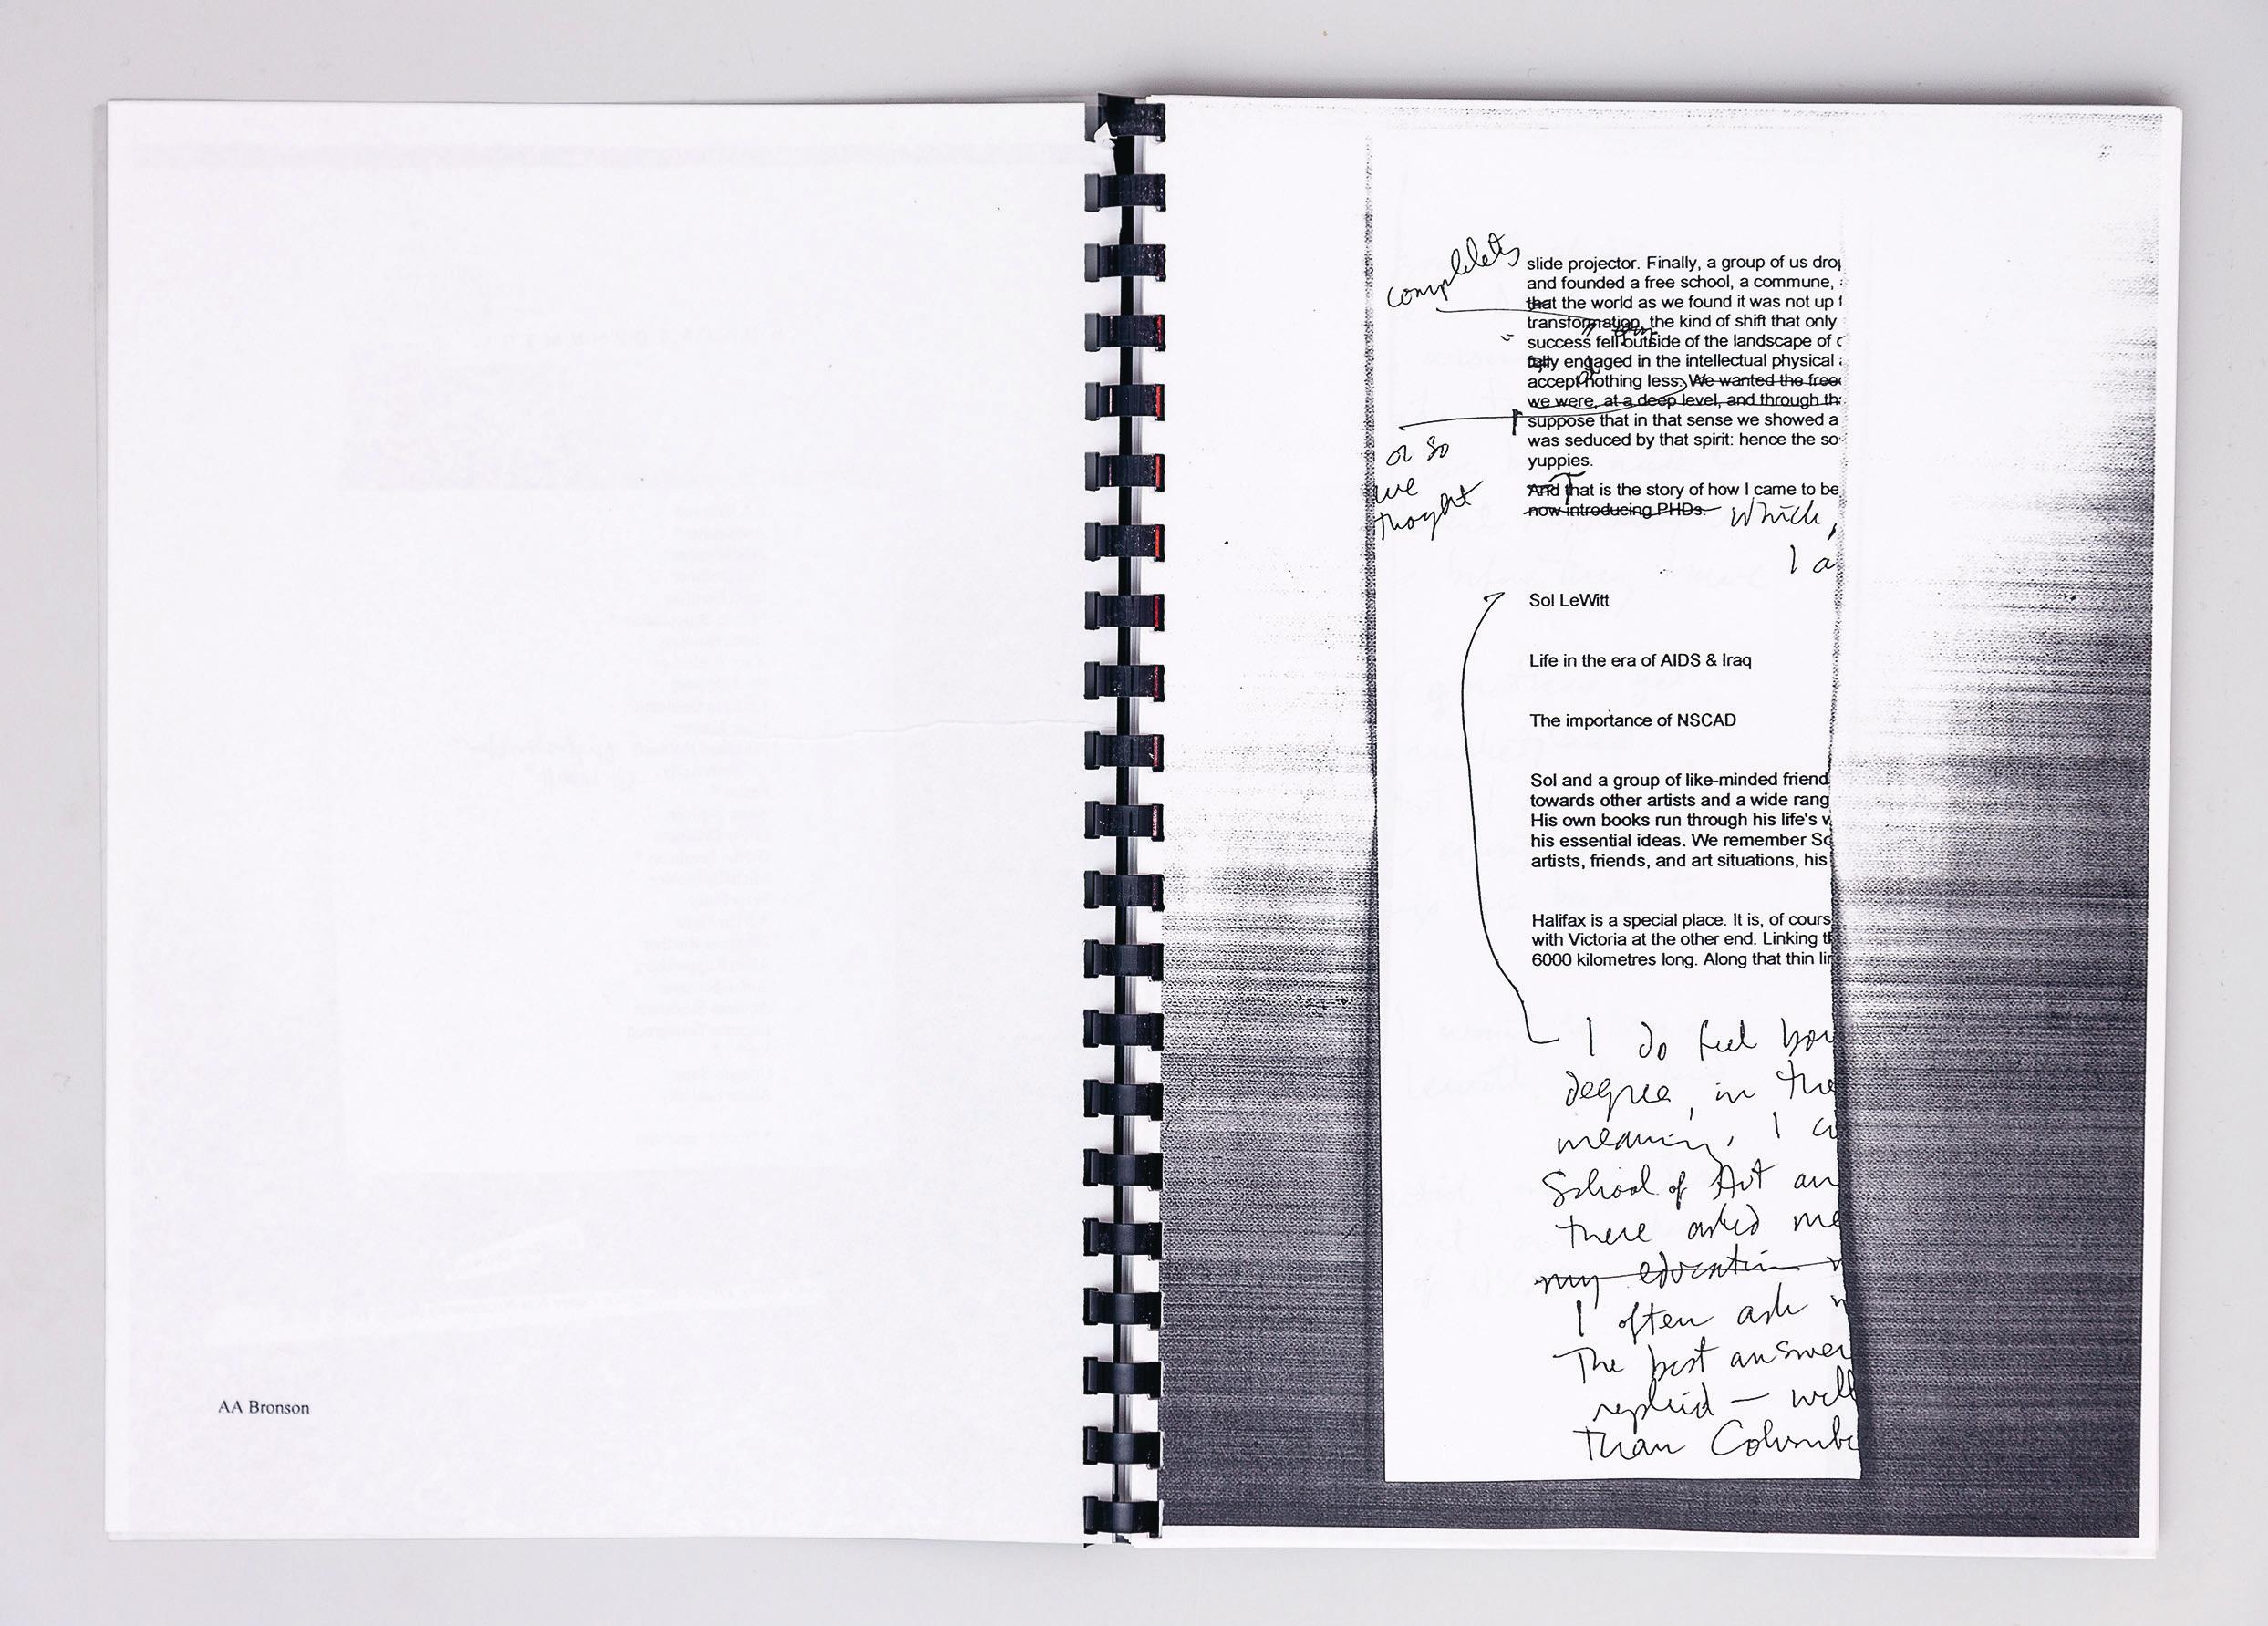 AA Bronson
completely
slide projector. Finally, a group of us drop
and founded a free school, a commune,
that the world as we found it was not up t
transformation, the kind of shift that only
success fell outside of the landscape of
fully engaged in the intellectual physical
accept nothing less. We wanted the free
we were, at a deep level, and through th
suppose that in that sense we showed a
was seduced by that spirit: hence the so
yuppies.
or so
we
thought
And that is the story of how I came to be
now introducing PHDs. Which,
I a
Sol LeWitt
Life in the era of AIDS & Iraq
The importance of NSCAD
Sol and a group of like-minded friend
towards other artists and a wide rang
His own books run through his life's
his essential ideas. We remember So
artists, friends, and art situations, his
Halifax is a special place. It is, of cours
with Victoria at the other end. Linking t
6000 kilometres long. Along that thin lin
I do feel
degree, in the
meaning, I
School of Art an
there asked me
my education
I often ask
The best answer
replied – well
than Columbi